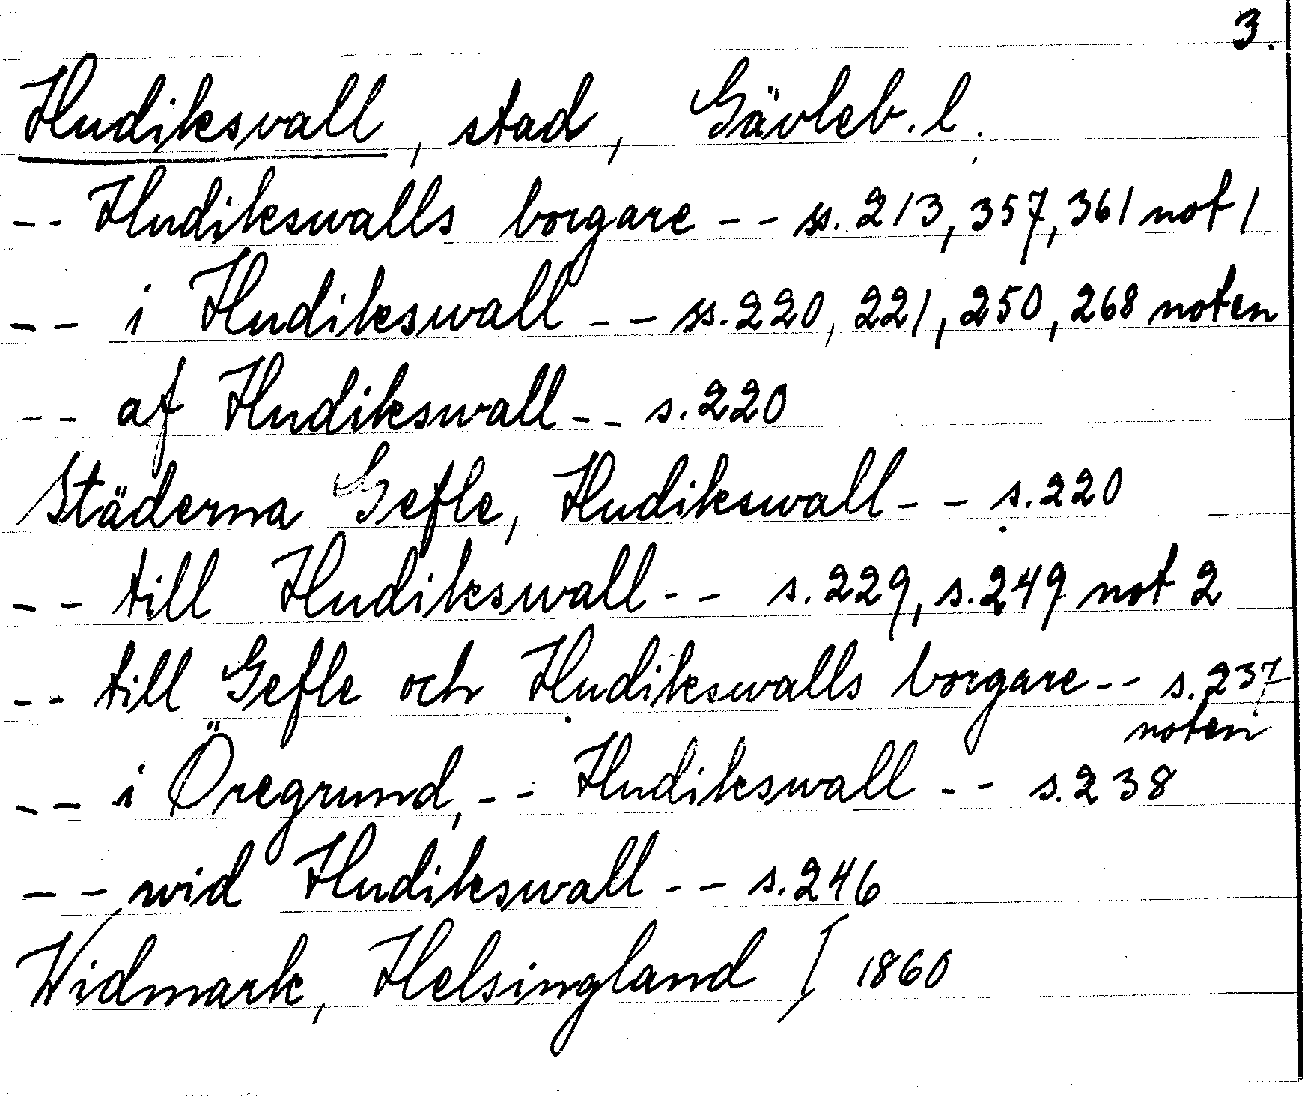 3.
Hudiksvall, stad, Gävleb. l.
-- Hudikswalls borgare -- ss. 213, 357, 361 not 1
-- i Hudikswall -- ss. 220, 221, 250, 268 noten
-- af Hudikswall -- s. 220
Städerna Gefle, Hudikswall -- s. 220
-- till Hudikswall -- s. 229, s. 249 not 2
-- till Gefle och Hudikswalls borgare -- s. 237
noten
-- i Öregrund, -- Hudikswall -- s. 238
-- wid Hudikswall -- s. 246
Widmark, Helsingland I 1860